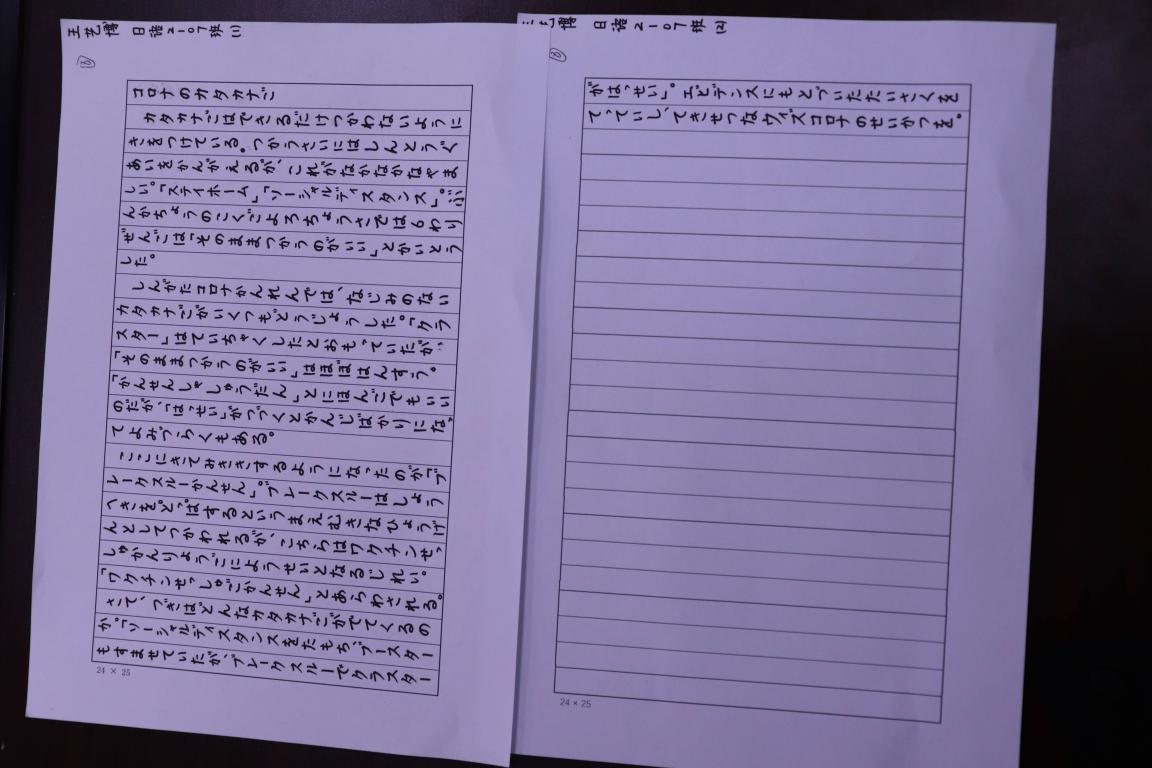 王艺博 日语2107班 (1)
(18)
コロナのカタカナご
カタカナごはできるだけつかわないように
きをつけている。つかうさいにはしんとうぐ
あいをかんがえるが、これがなかなかなやま
しい。「ステイホーム」「ソーシャルディスタンス」。ぶ
んかちょうのこくごよろちょうさでは6わり
ぜんごは「そのままつかうのがいい」とかいとう
した。
しんがたコロナかんれんでは、なじみのない
カタカナごがいくつもとうじょうした。「クラ
スター」はていちゃくしたとおもっていたが、
「そのままつかうのがいい」はほぼはんすう。
「かんせんしゃしゅうだん」とにほんごでもいい
のだが、「はっせい」がつづくとかんじばかりになっ
てよみづらくもある。
ここにきてみききするようになったのが「ブ
レークスルーかんせん」。ブレークスルーはしょう
へきをとっぱするというまえむきなひょうげ
んとしてつかわれるが、こちらはワクチンせっ
しゅかんりょうごにようせいとなるじれい。
「ワクチンせっしゅごかんせん」とあらわされる。
さて、つぎはどんなカタカナごがでてくるの
か。「ソーシャルディスタンスをたもち、ブースター
もすませていたが、ブレークスルーでクラスター
24 × 25
艺博 日语2107班 (2)
がはっせい」。エビデンスにもとづいたたいさくを
てっていし、てきせつなウィズコロナのせいかつを。
24 × 25